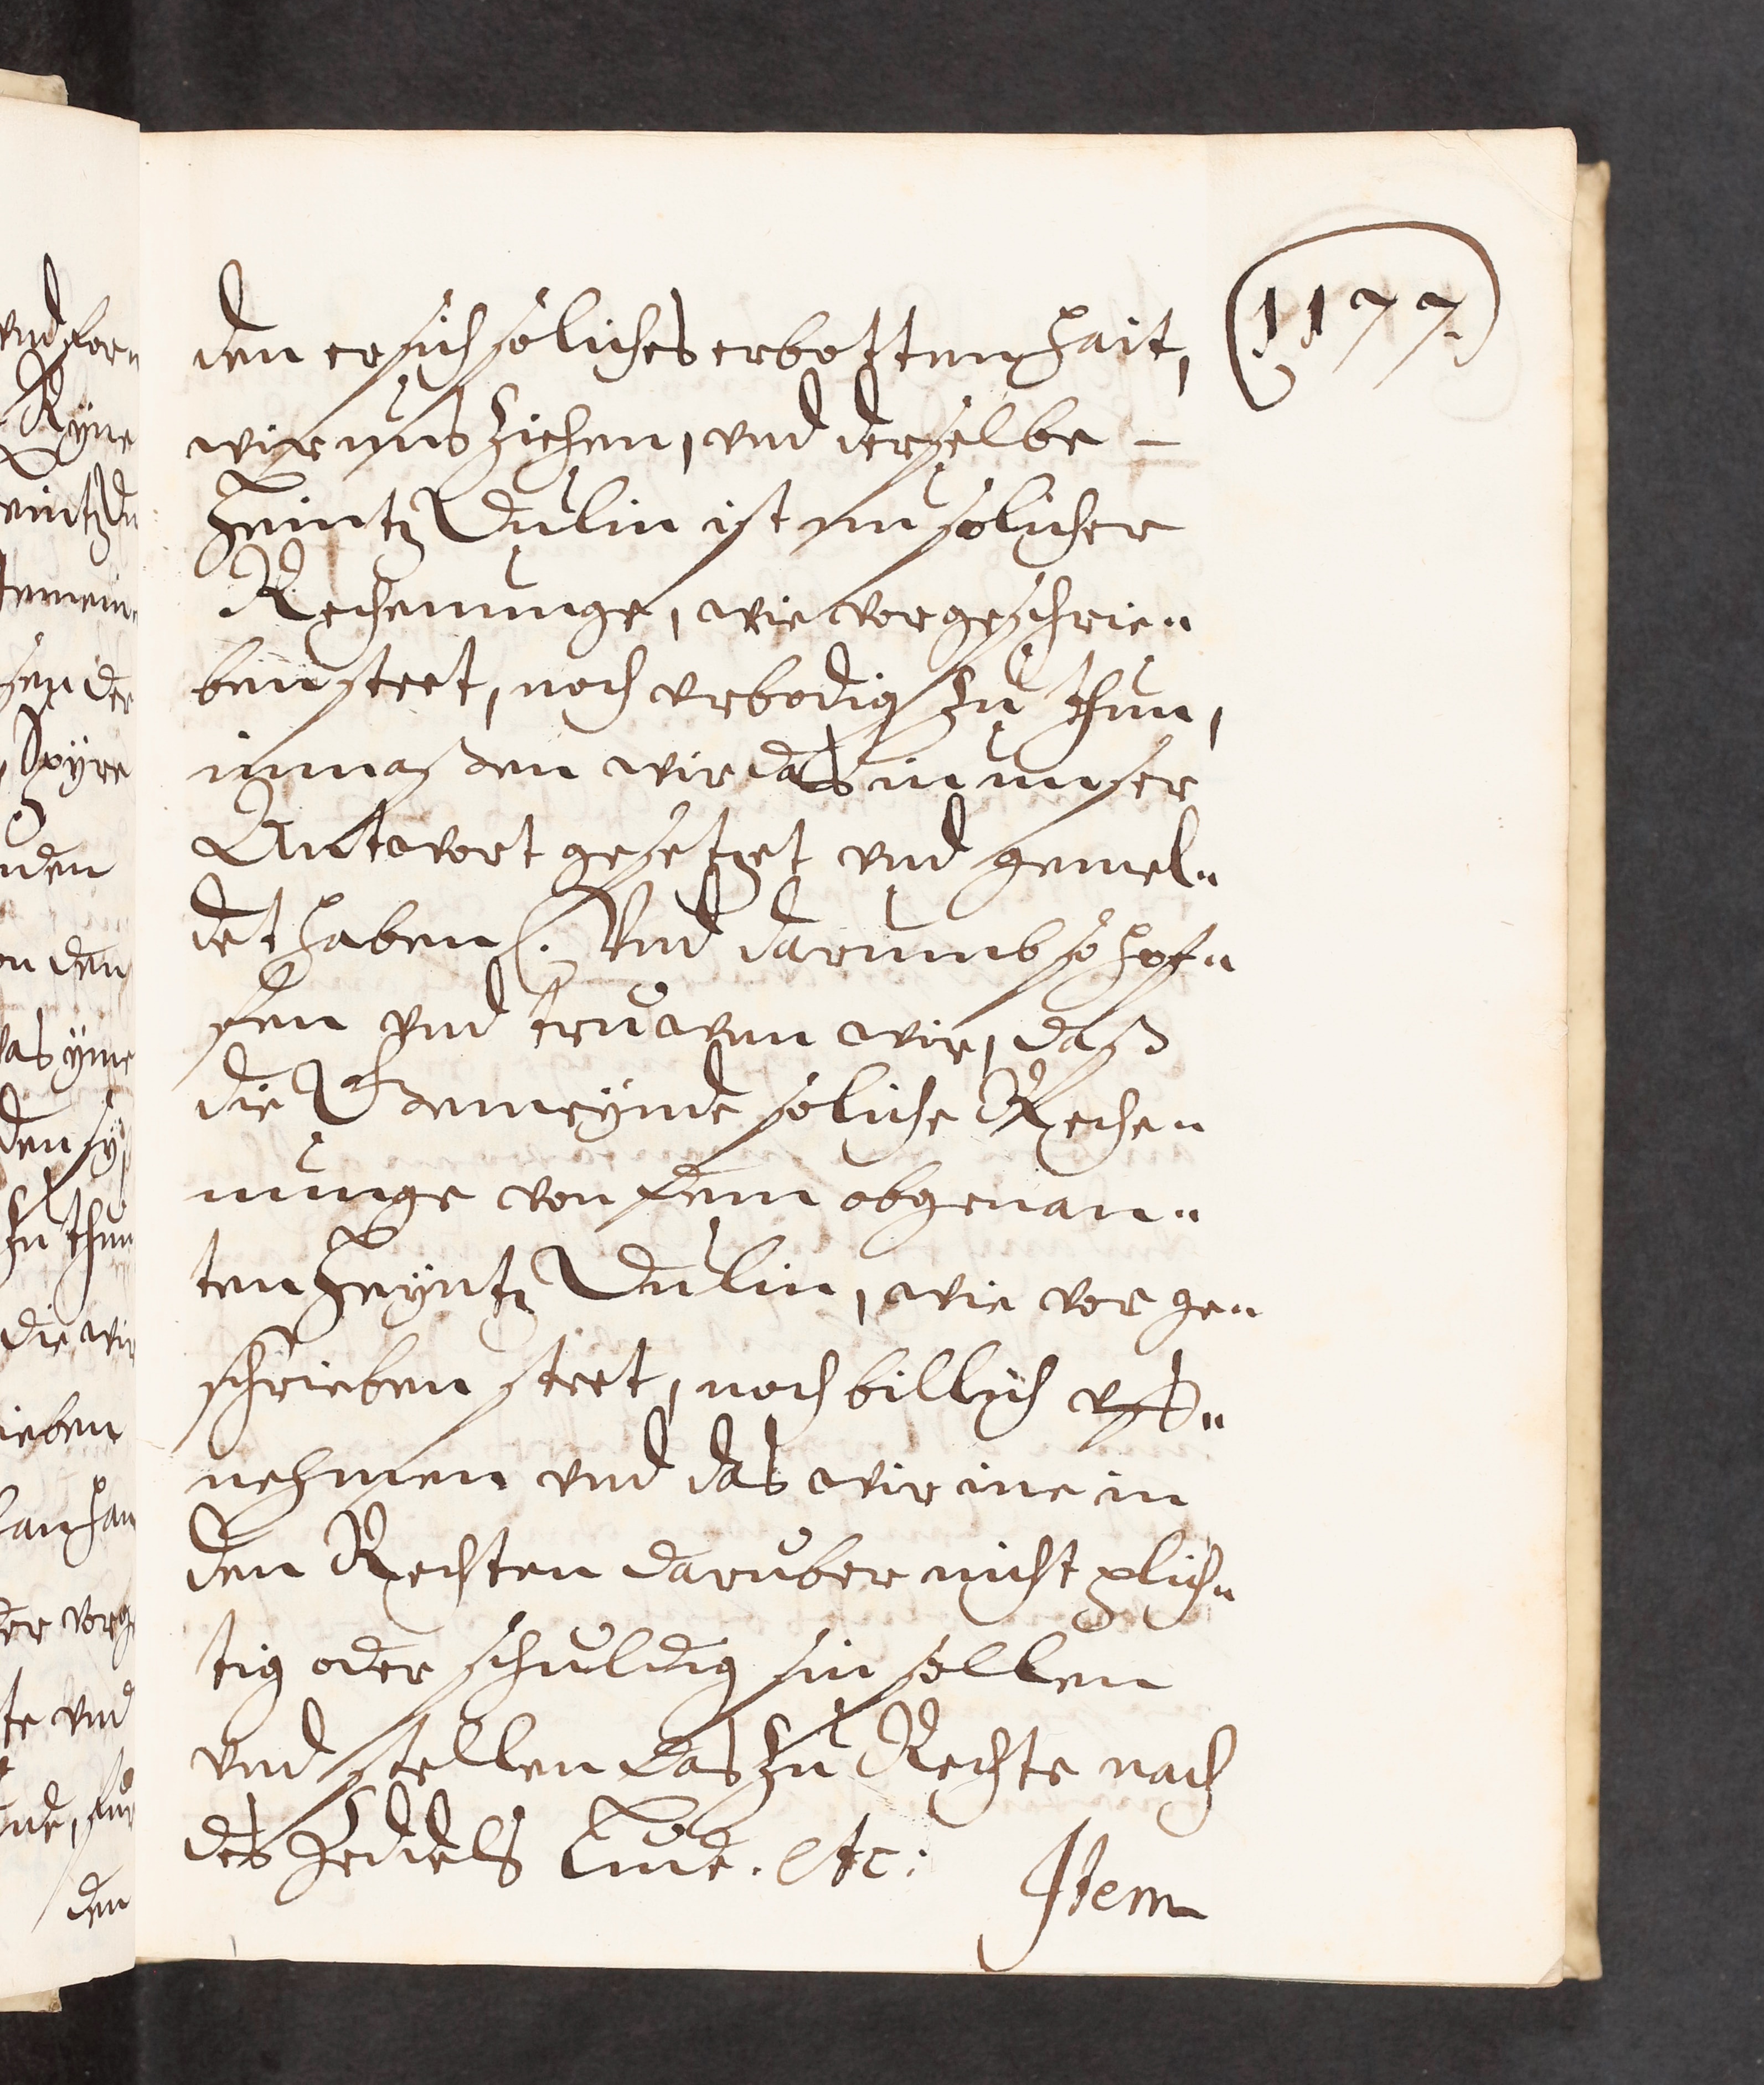 1177.
den er sich soliches erbotten hait,
wir uns ziehen, vnd derselbe –
Heintz Dulin ist nu solicher
Rechenunge, wie vorgeschrie„
ben steet, noch vrbodig zu thun,
inmaßen wir das in unser
Antwort gesetzet vnd gemel„
det haben. Vnd darumb so hof„
fen vnd truwen wir, daß
die Gemeÿnde soliche Reche„
nunge von dem obgenan„
ten Heÿntz Dulin, wie vor ge„
schrieben steet, noch billich vff„
nehmen vnd das wir ine in
den Rechten daruber nicht plich„
tig oder schuldig sin sollen
vnd stellen das zu Rechte nach
des Zeddels Ende. etc:
Item